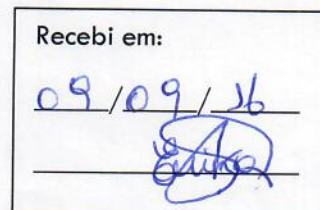 Recebi em:
09/09/16